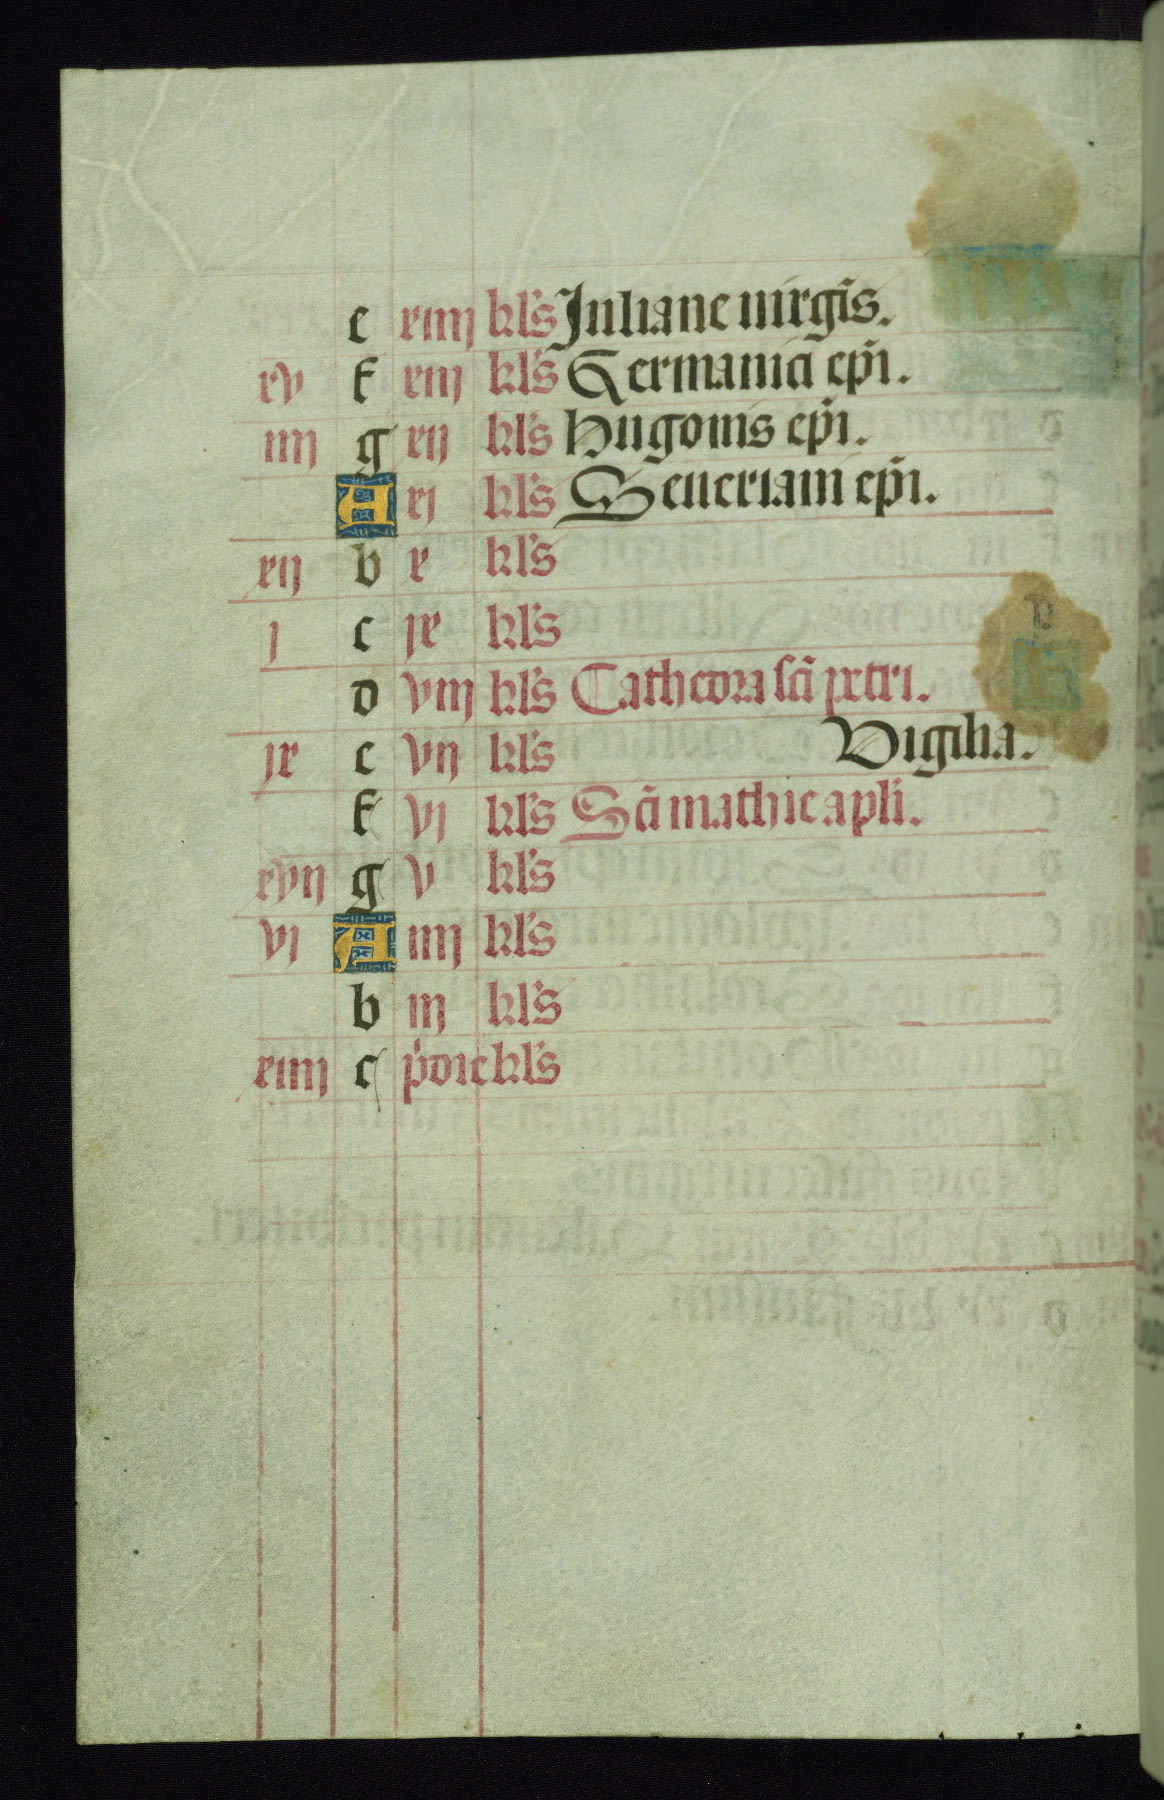 e xiiij kl's Juliane uirgis.
xv f xiij kl's Germanici epi.
iiij g xij kl's Hugonis epi.
A xj kl's Seueriani epi.
xij b x kl's
j c jx kl's
d viij kl's Cathedra sci petri.
jx e vij kl's Vigilia.
f vj kl's Sci mathie apli.
xvij g v kl's
vj A iiij kl's
b iij kl's
xiiij c pdie kl's